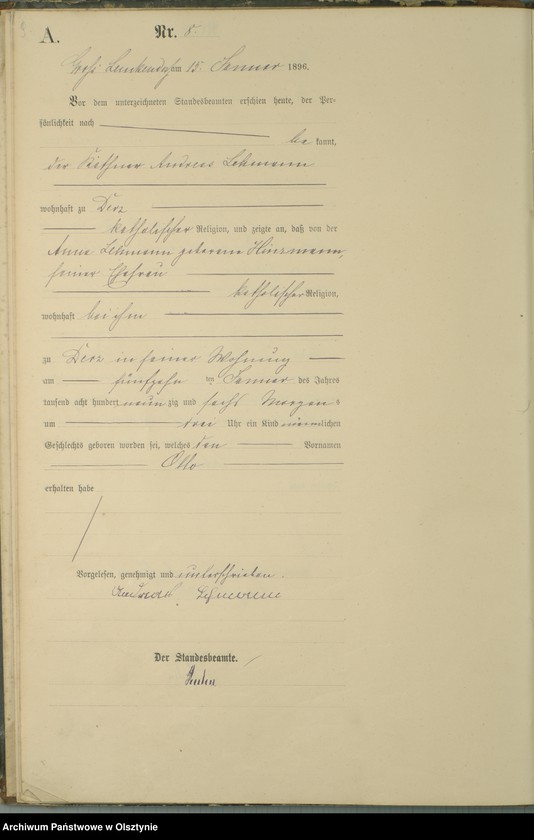 A.
Nr. 8.
am 15. Januar 1896.
Vor dem unterzeichneten Standesbeamten erschien heute, der Per-
sönlichkeit nach
be kannt,
der Käthner Andreas Lehmann
wohnhaft zu Derz
katholischer Religion, und zeigte an, daß von der
Anna Lehmann geborenen Hinzmann,
seiner Ehefrau
katholischer Religion,
wohnhaft bei ihm
zu Derz in seiner Wohnung
am fünfzehn ten Januar des Jahres
tausend acht hundert neun zig und sechs Morgens
um drei Uhr ein Kind männlichen
Geschlechts geboren worden sei, welches den Vornamen
Otto
erhalten habe
Vorgelesen, genehmigt und unterschrieben.
Andreas Lehmann
Der Standesbeamte.
Archiwum Państwowe w Olsztynie